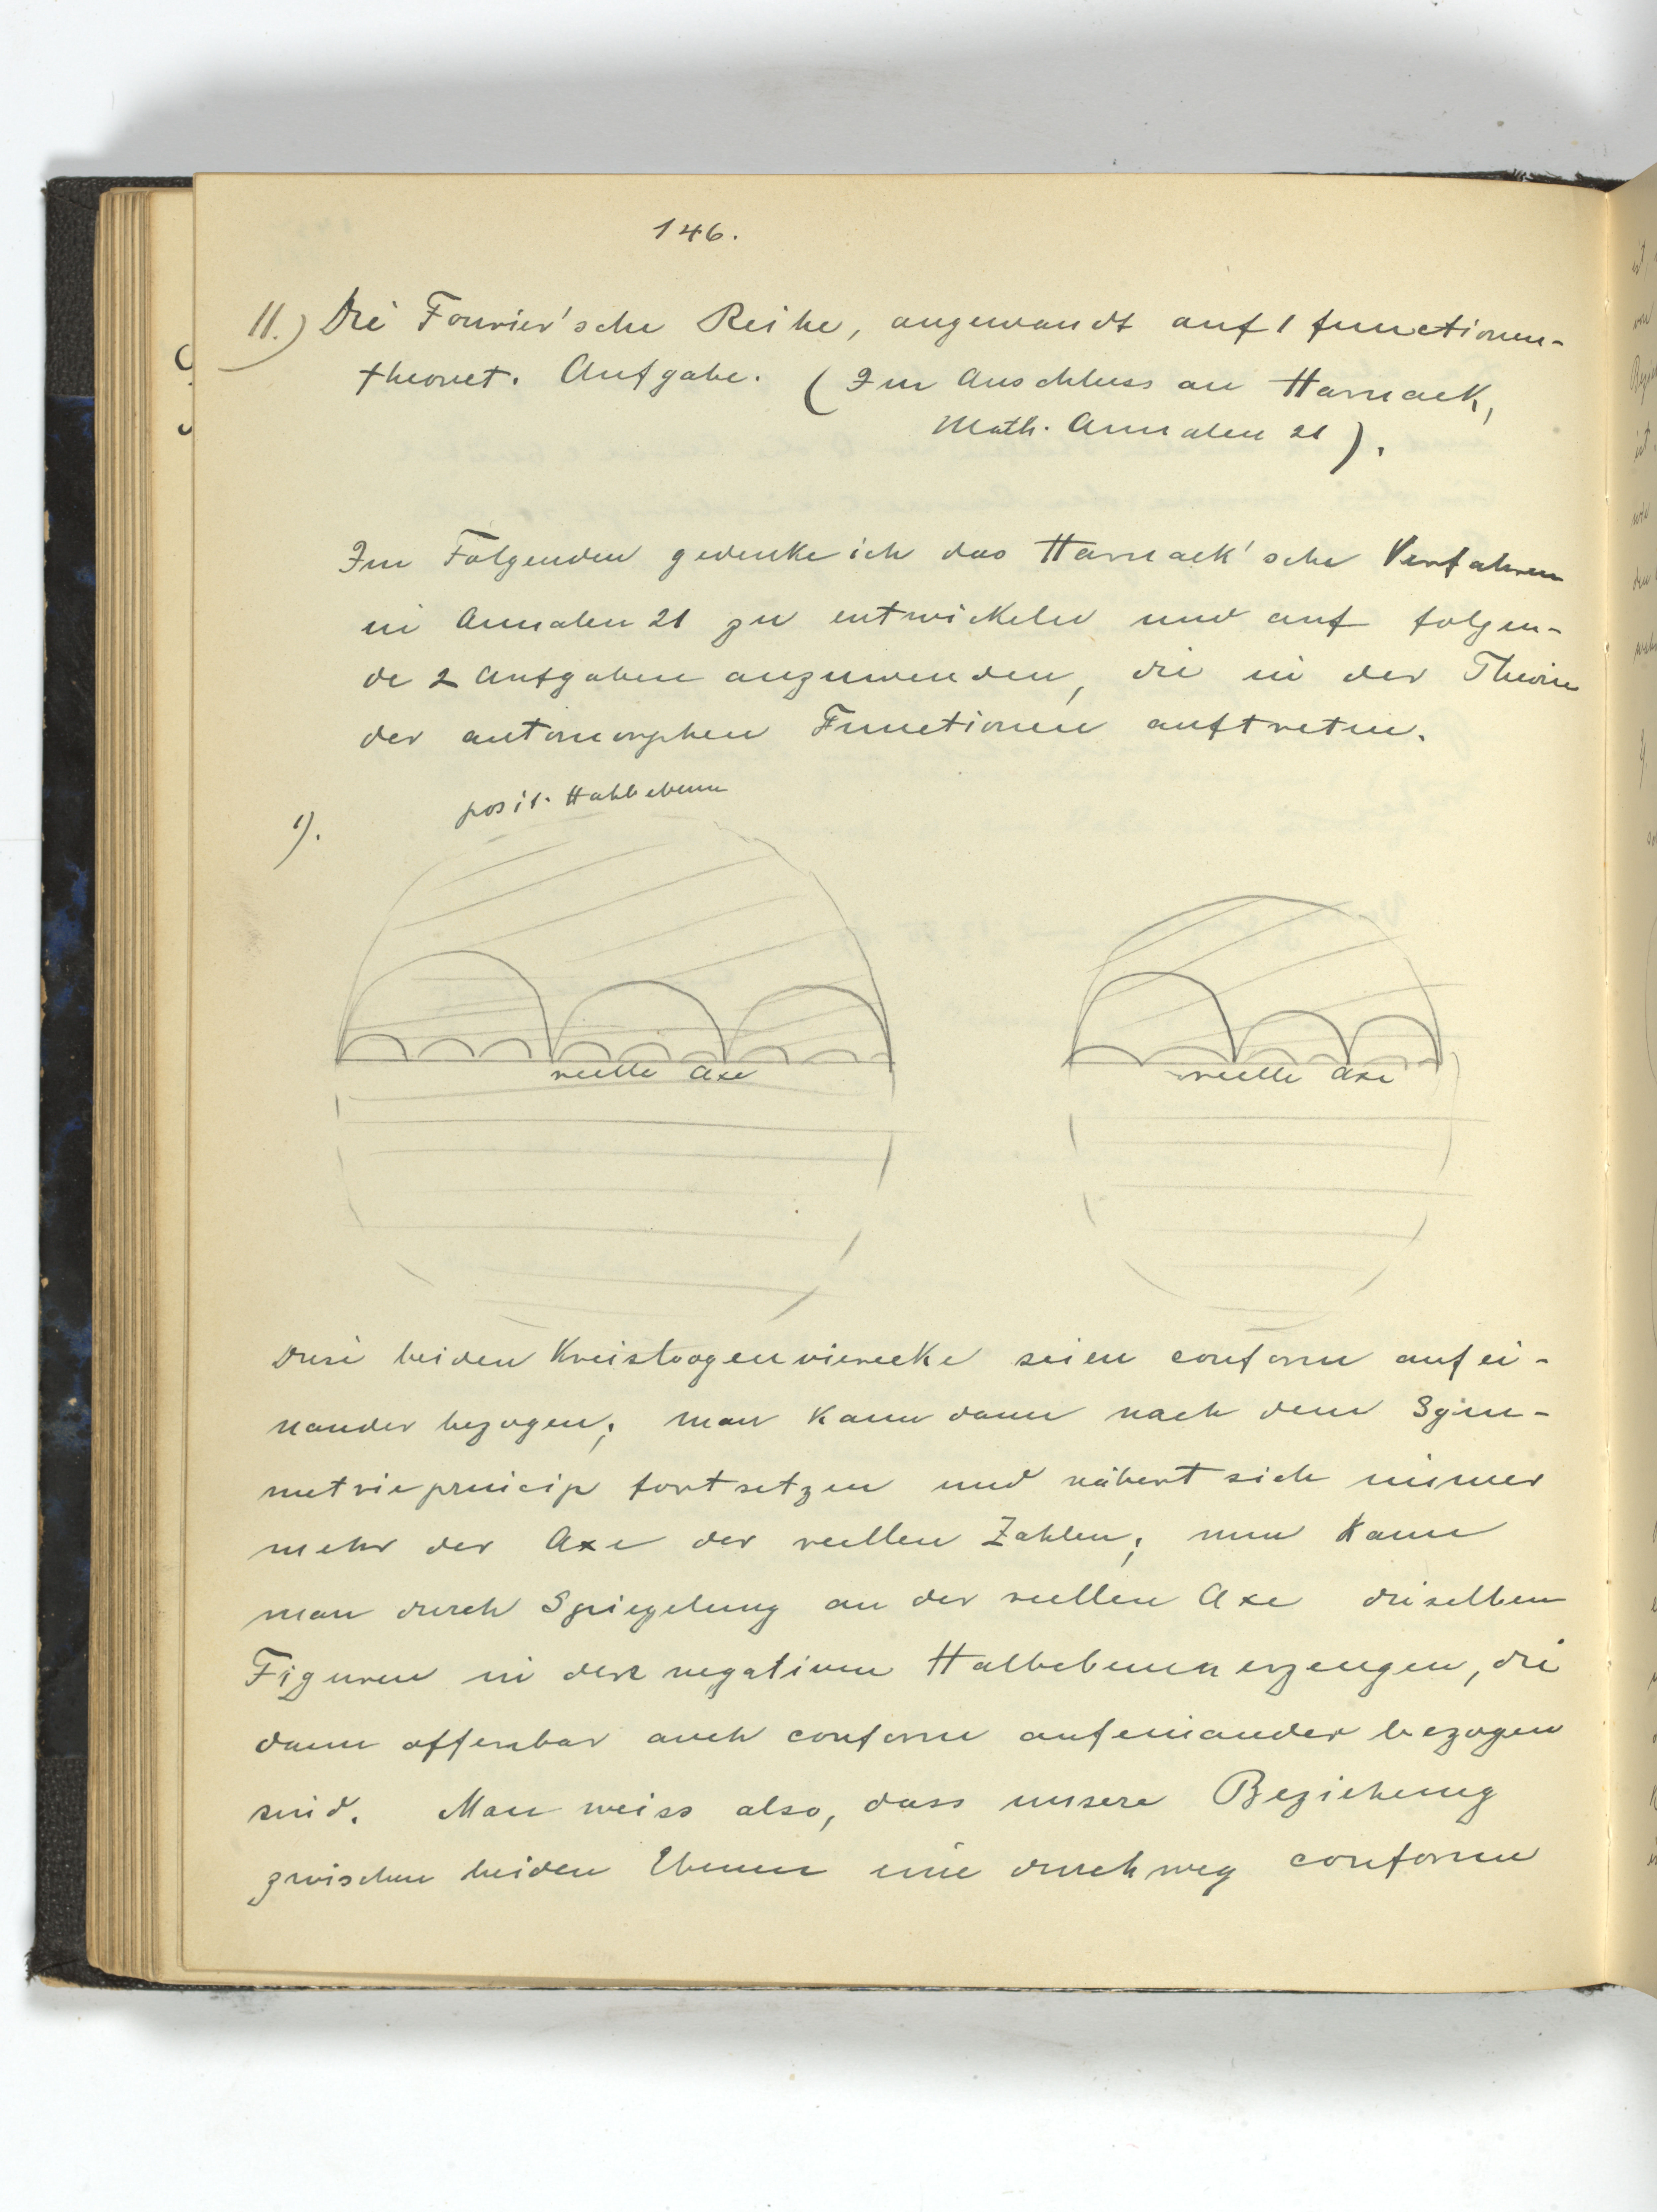 146.
11.) Die Fourier'sche Reihe, angewandt auf 1 functionen-
theoret. Aufgabe. (Im Anschluss an Harnack,
Math. Annalen 21).
Im Folgenden gedenke ich das Harnack'sche Verfahren
in Annalen 21 zu entwickeln und auf folgen-
de 2 Aufgaben anzuwenden, die in der Theorie
der automorphen Functionen auftreten.
1).
posit. Halbebene
reelle Axe
reelle Axe
Diese beiden Kreisbogenvierecke seien conform aufei-
nander bezogen; man kann dann nach dem Sym-
metrieprincip fortsetzen und nähert sich immer
mehr der Axe der reellen Zahlen; nun kann
man durch Spiegelung an der reellen Axe dieselben
Figuren in den negativen Halbebenen erzeugen, die
dann offenbar auch conform aufeinander bezogen
sind. Man weiss also, dass unsere Beziehung
zwischen beiden Ebenen eine durchweg conforme